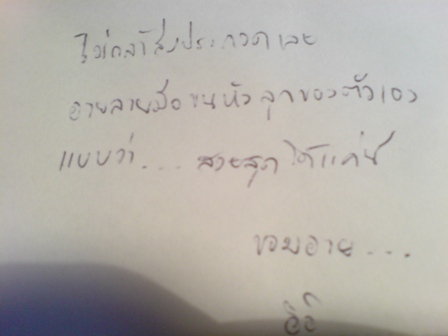 ไม่กล้าส่งประกวดเลย
อายลายมือขนหัวลุกของตัวเอง
แบบว่า... สวยสุดได้แค่นี้
ขอบอาย...
อิอิ